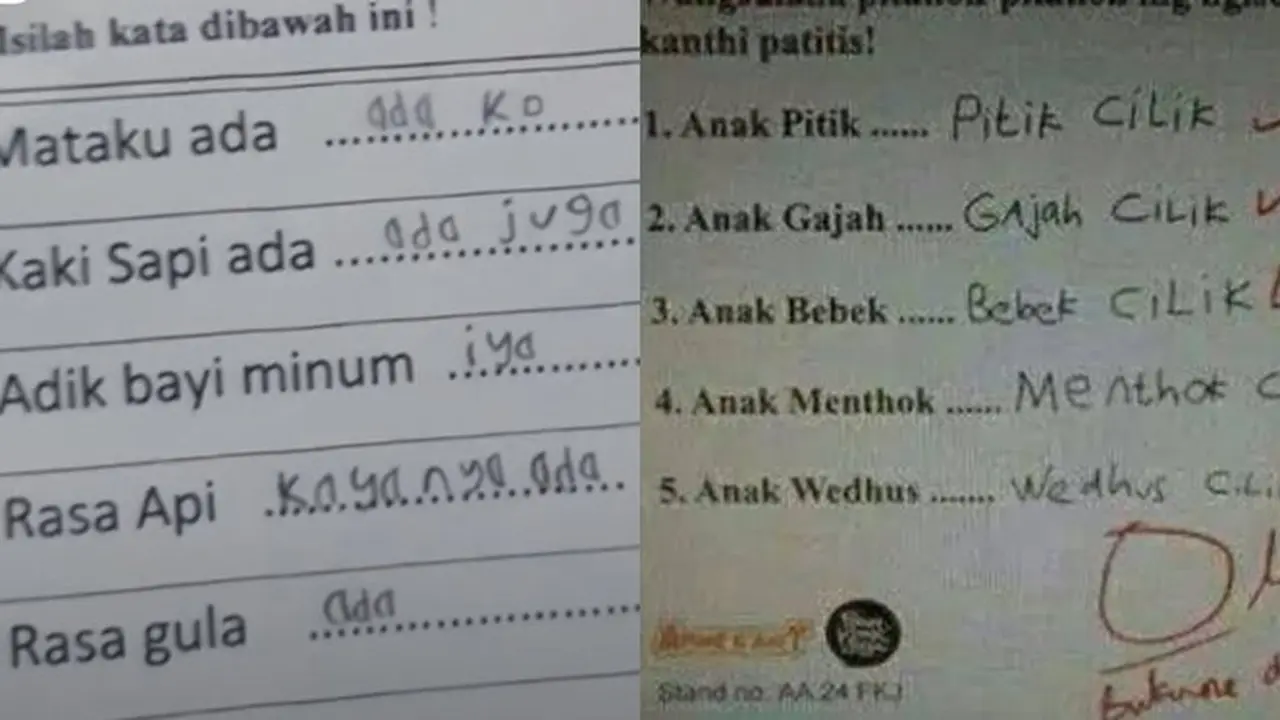 Isilah kata dibawah ini !
Mataku ada ada ko
Kaki Sapi ada ada juga
Adik bayi minum iya
Rasa Api kayanya ada
Rasa gula ada
kanthi patitis!
1. Anak Pitik ...... Pitik Cilik
2. Anak Gajah ...... Gajah Cilik
3. Anak Bebek ...... Bebek Cilik
4. Anak Menthok ...... Menthok C
5. Anak Wedhus ....... Wedhus Cili
0
Stand no. AA 24 FKJ
bukune